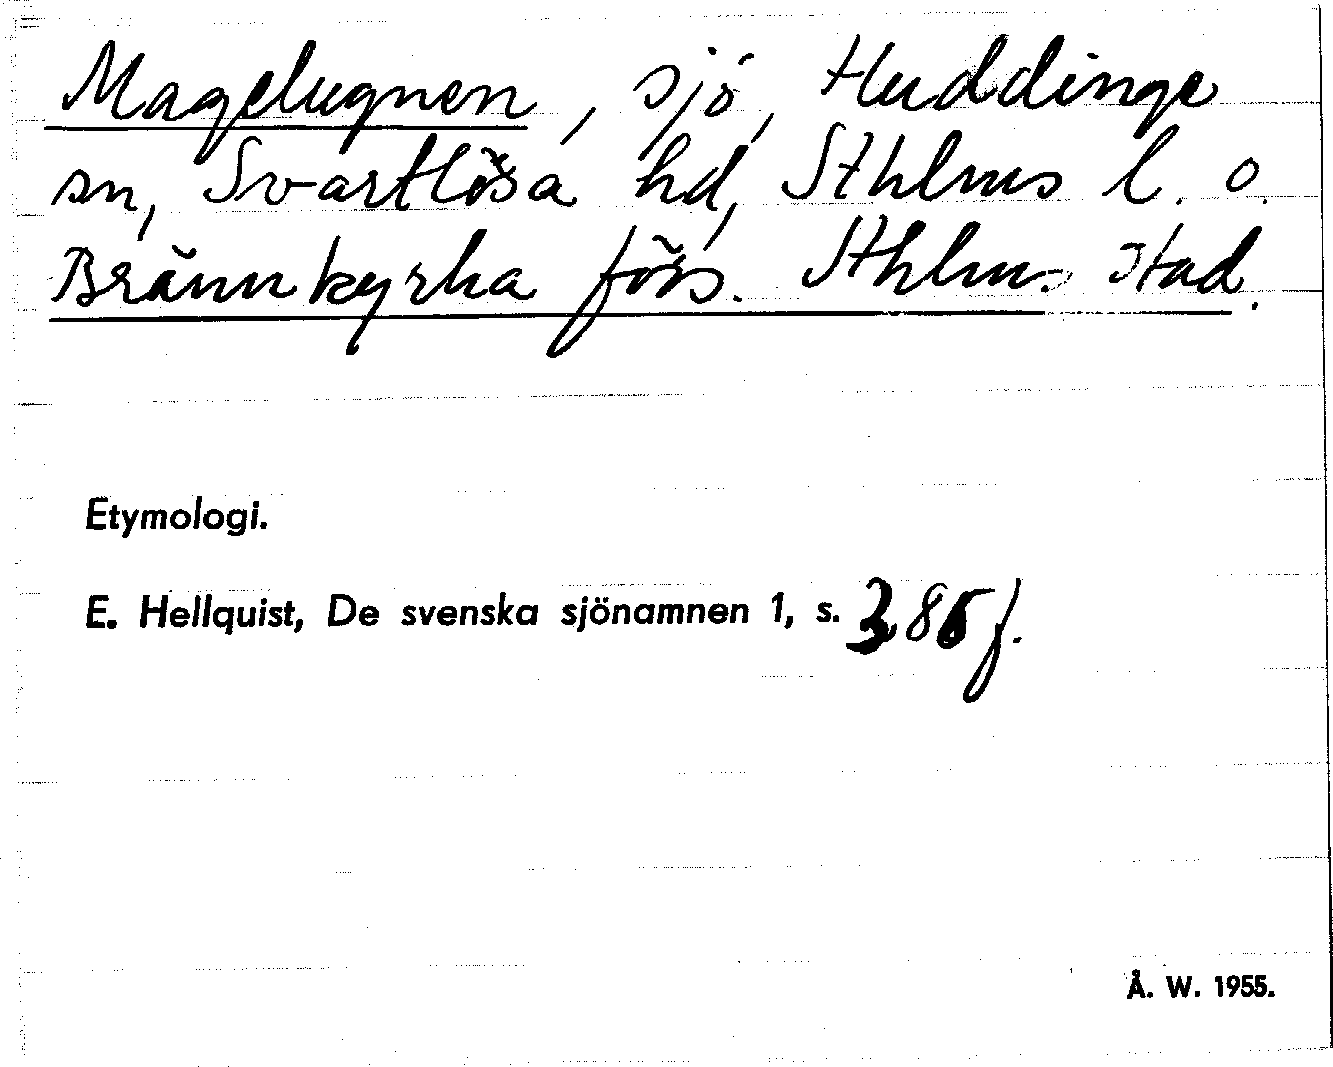 Magelugnen, sjö, Huddinge
sn, Svartlösa hd, Sthlms l. o.
Brännkyrka förs. Sthlms stad.
Etymologi.
E. Hellquist, De svenska sjönamnen 1, s. 385 f.
Å. W. 1955.